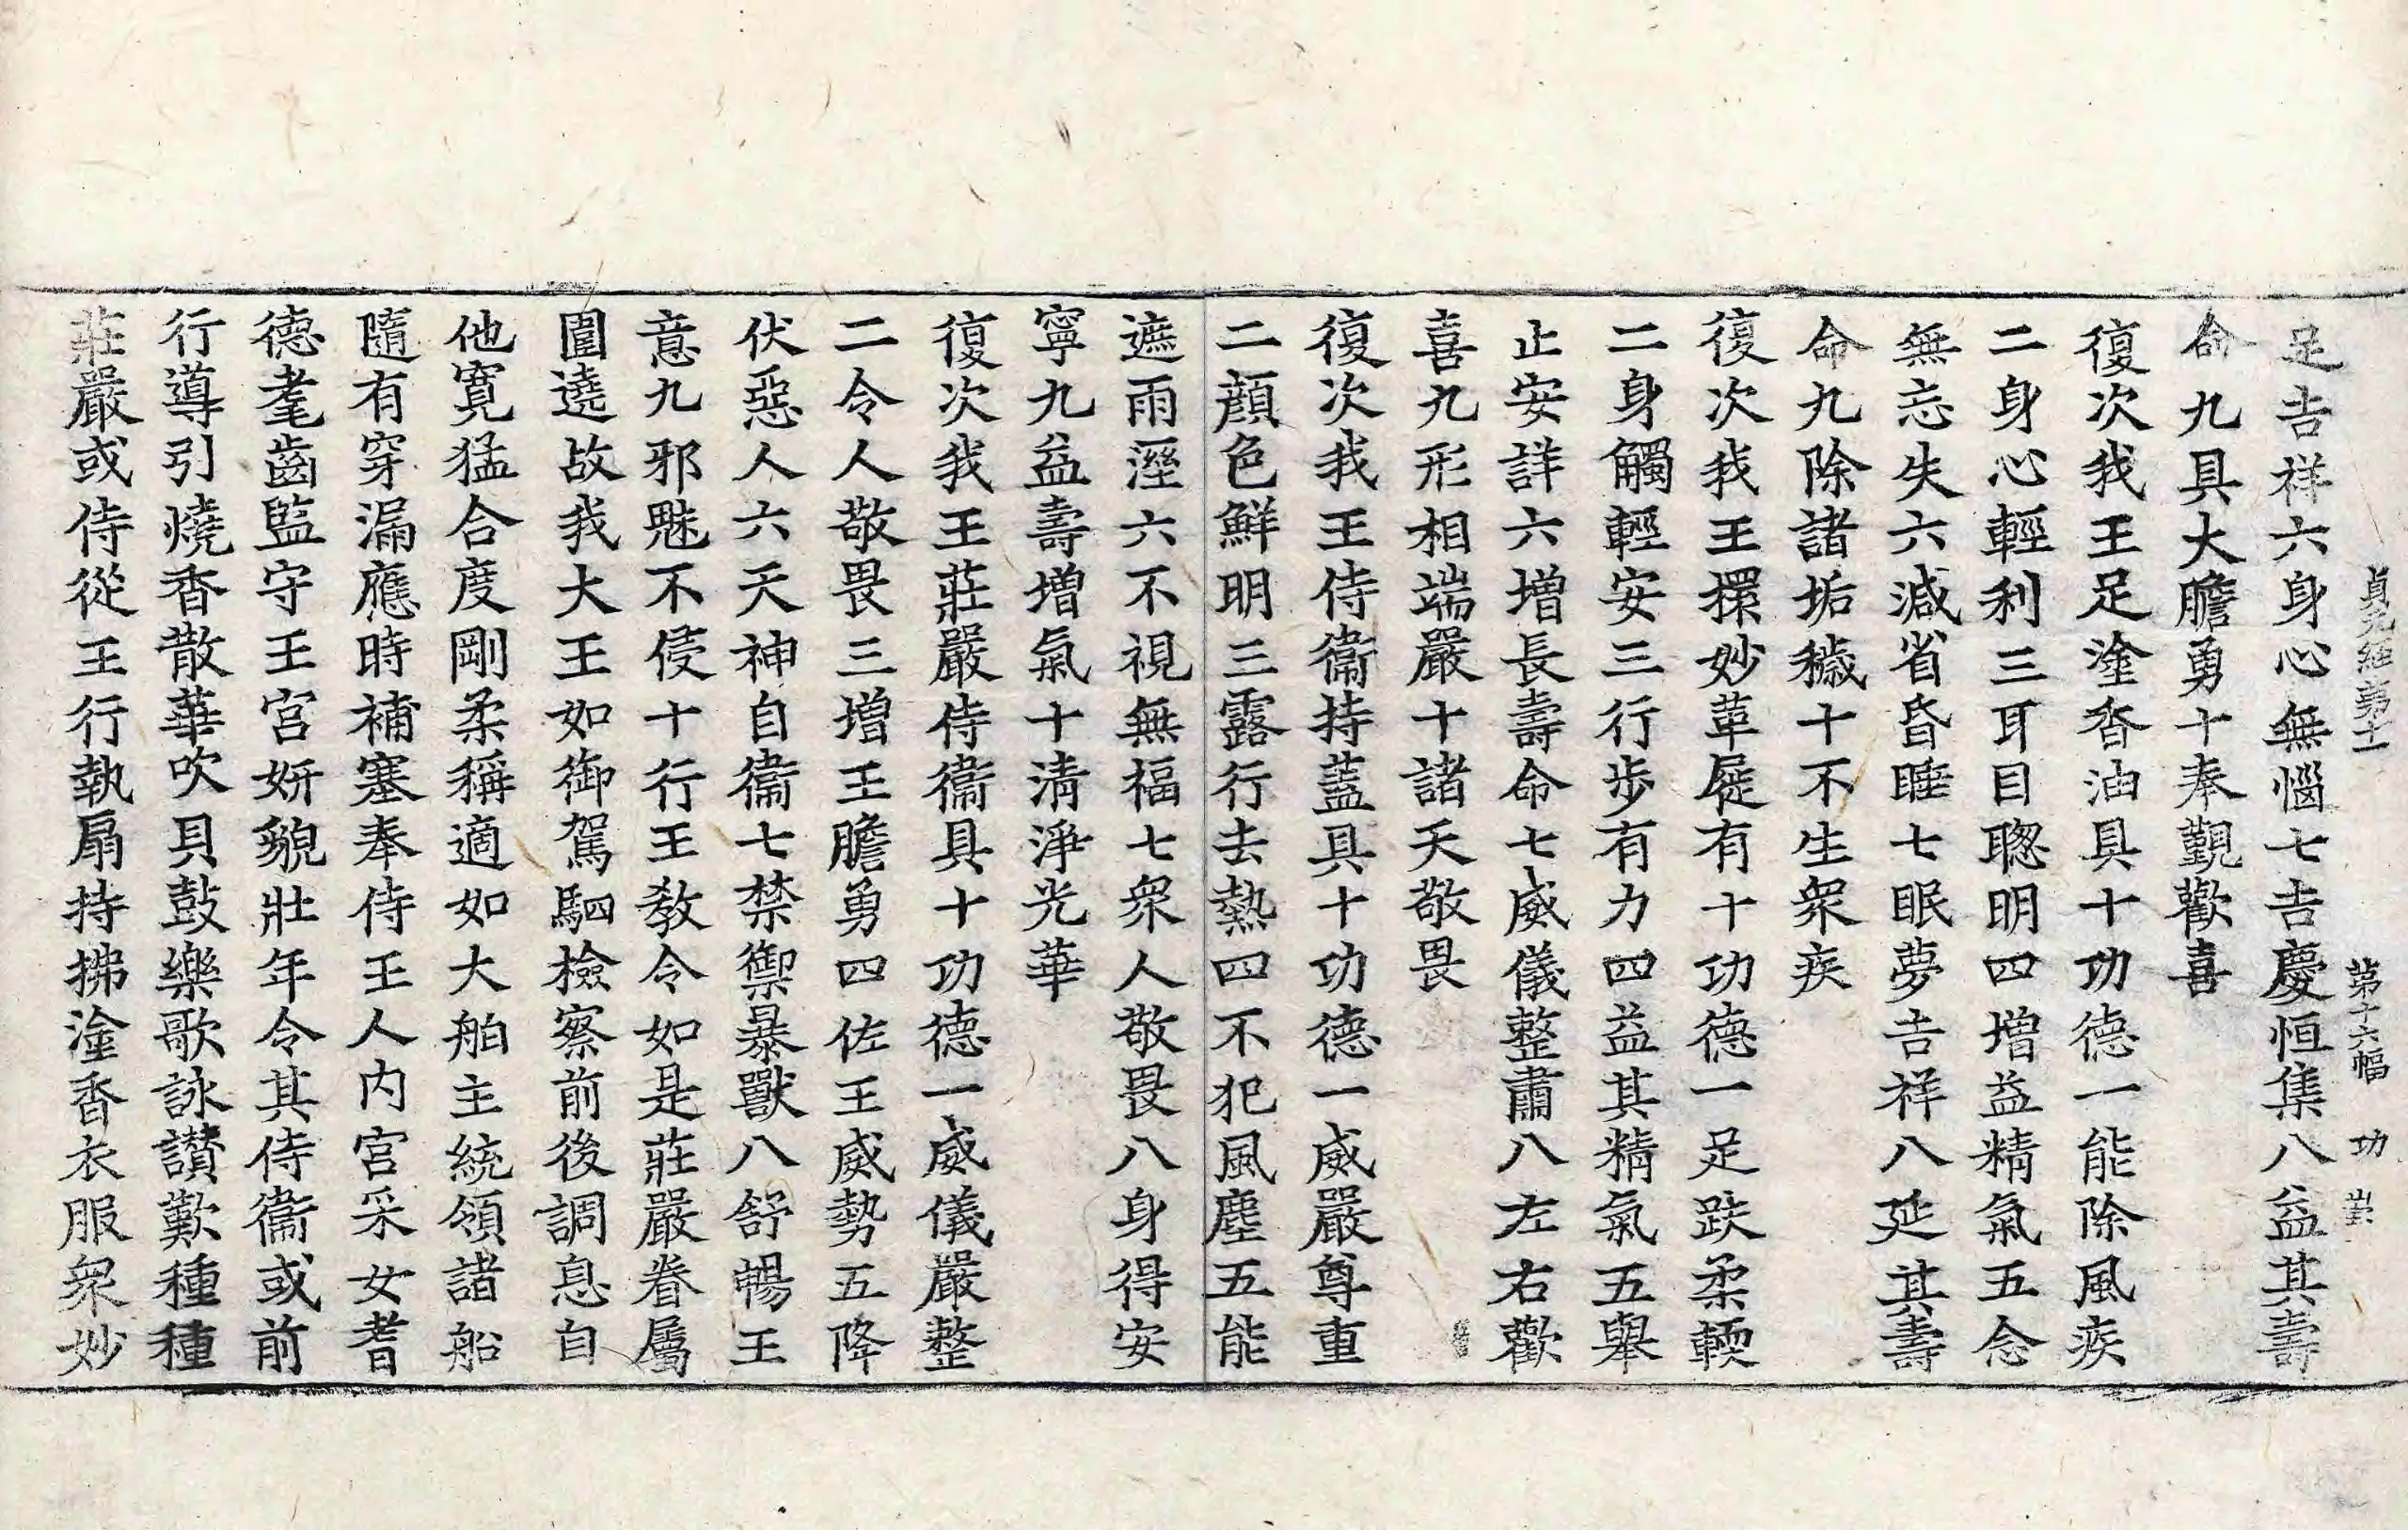 貞元經第十一　第十六幅　功
足吉祥六身心無惱七吉慶恒集八益其壽
命九具大膽勇十奉覲歡喜
復次我王足塗香油具十功德一能除風疾
二身心輕利三耳目聰明四增益精氣五念
無忘失六減省昏睡七眠夢吉祥八延其壽
命九除諸垢穢十不生衆疾
復次我王擐妙革屣有十功德一足趺柔輭
二身觸輕安三行步有力四益其精氣五舉
止安詳六增長壽命七威儀整肅八左右歡
喜九形相端嚴十諸天敬畏
復次我王侍衞持蓋具十功德一威嚴尊重
二顏色鮮明三露行去熱四不犯風塵五能
遮雨溼六不視無福七衆人敬畏八身得安
寧九益壽增氣十清淨光華
復次我王莊嚴侍衞具十功德一威儀嚴整
二令人敬畏三增王膽勇四佐王威勢五降
伏惡人六天神自衞七禁禦暴獸八舒暢王
意九邪魅不侵十行王教令如是莊嚴眷屬
圍遶故我大王如御駕駟檢察前後調息自
他寬猛合度剛柔稱適如大舶主統領諸船
隨有穿漏應時補塞奉侍王人内宮采女耆
德耄齒監守王宮妍貌壯年令其侍衞或前
行導引燒香散華吹貝鼓樂歌詠讚歎種種
莊嚴或侍從王行執扇持拂塗香衣服衆妙